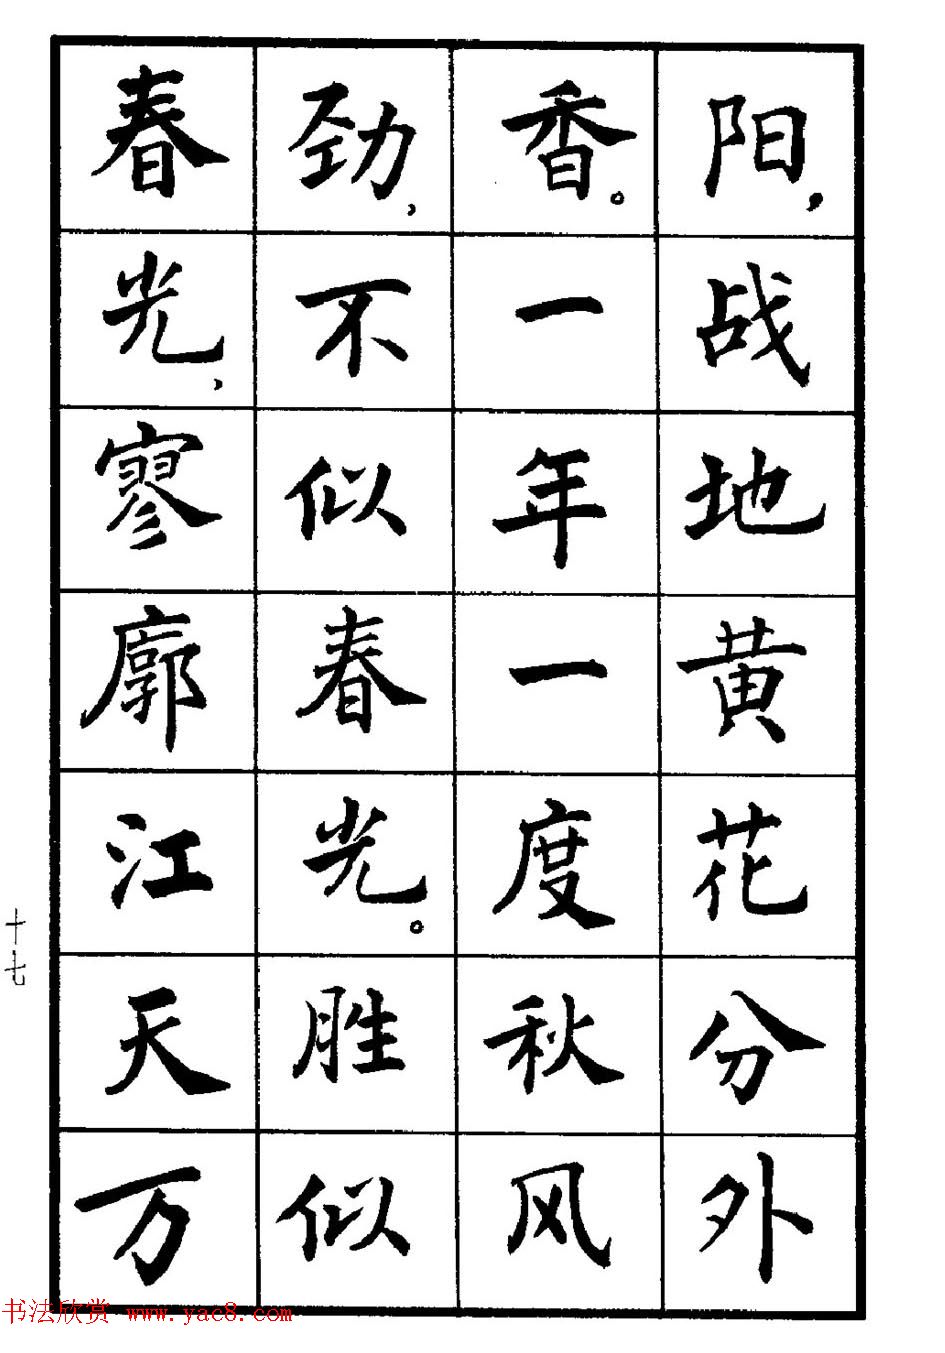 阳，战地黄花分外
香。一年一度秋风
劲，不似春光。胜似
春光，寥廓江天万
十七
书法欣赏 www.yac8.com